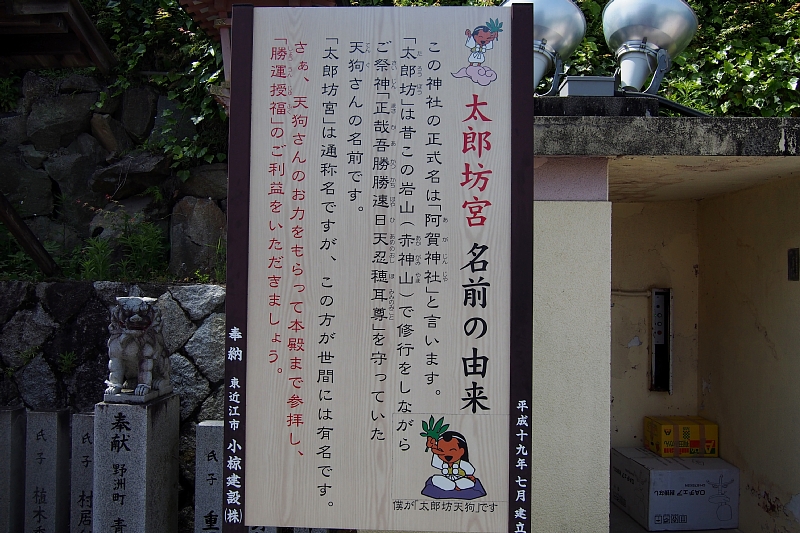 太郎坊宮 名前の由来
この神社の正式名は「阿賀神社」と言います。
「太郎坊」は昔この岩山（赤神山）で修行をしながら
ご祭神「正哉吾勝勝速日天忍穂耳尊」を守っていた
天狗さんの名前です。
「太郎坊宮」は通称名ですが、この方が世間には有名です。
さぁ、天狗さんのお力をもらって本殿まで参拝し、
「勝運授福」のご利益をいただきましょう。
僕が「太郎坊天狗」です
平成十九年七月建立
奉納 東近江市 小椋建設㈱
奉献 野洲町 青
氏子
氏子 植木
氏子 村居
氏子 重